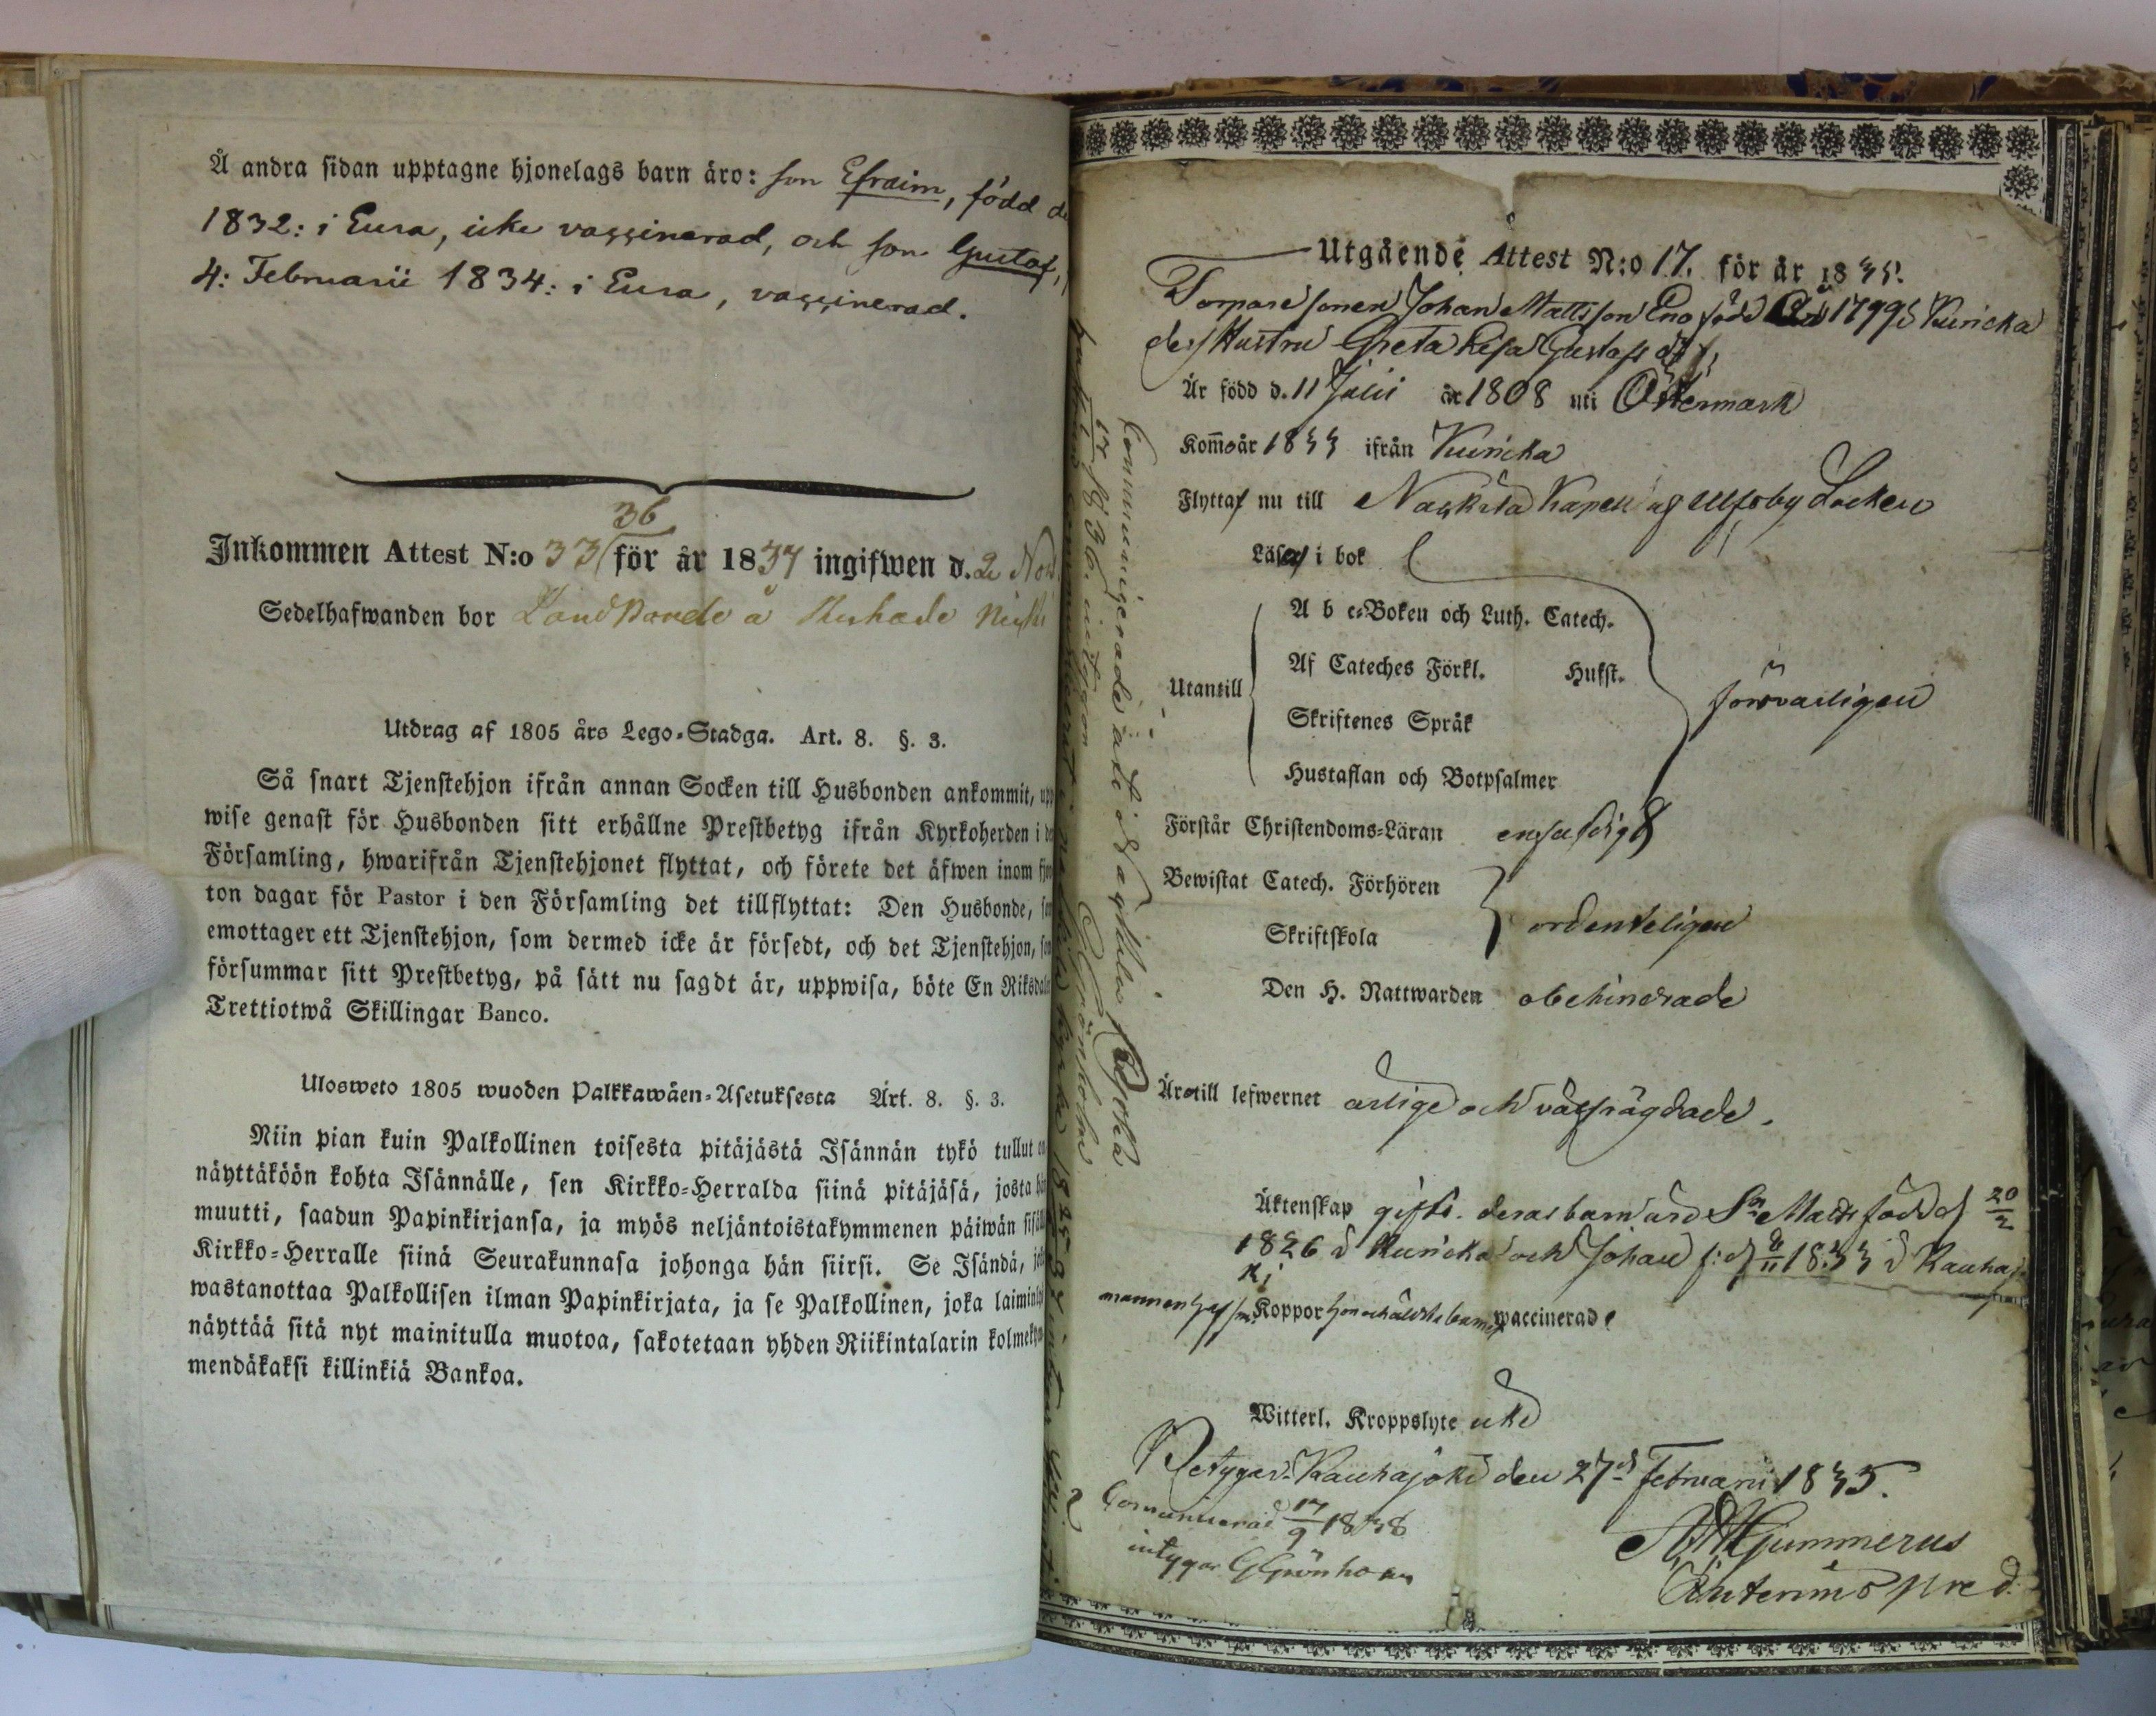 Å andra sidan upptagne hjonelags barn äro: son Efraim, född
1832: i Eura, icke vaccinerad, och son Gustaf,
4: Februarii 1834: i Eura, vaccinerad.
36
Inkommen Attest N:o 33 för år 1837 ingifwen d. 2 Nov
Sedelhafwanden bor
Utdrag af 1805 års Lego-Stadga. Art. 8. §. 3.
Så snart Tjenstehjon ifrån annan Socken till Husbonden ankommit, upp
wise genast för Husbonden sitt erhållne Prestbetyg ifrån Kyrkoherden i de
Församling, hwarifrån Tjenstehjonet flyttat, och förete det äfwen inom fjor
ton dagar för Pastor i den Församling det tillflyttat: Den Husbonde, som
emottager ett Tjenstehjon, som dermed icke är försedt, och det Tjenstehjon, som
försummar sitt Prestbetyg, på sätt nu sagdt är, uppwisa, böte En Riksdaler
Trettiotwå Skillingar Banco.
Ulosweto 1805 wuoden Palkkawäen-Asetuksesta Art. 8. §. 3.
Niin pian kuin Palkollinen toisesta pitäjästä Isännän tykö tullut on
näyttäköön kohta Isännälle, sen Kirkko-Herralda siinä pitäjäsä, josta hän
muutti, saadun Papinkirjansa, ja myös neljäntoistakymmenen päiwän sisällä
Kirkko-Herralle siinä Seurakunnasa johonga hän siirsi. Se Isändä, jo
wastanottaa Palkollisen ilman Papinkirjata, ja se Palkollinen, joka laimin
näyttää sitä nyt mainitulla muotoa, sakotetaan yhden Riikintalarin kolmeky
mendäkaksi killinkiä Bankoa.
Utgående Attest N:o 17. för år 1835.
Torpare sonen Johan Mattsson Eno född 1799 i Kuricka
dess Hustru Greta Lisa Gustafs dr
Är född d. 11 Julii år 1808 uti Östermark
Kom̃o år 1833 ifrån Kuricka
Flytta nu till Kapell af Ulfsby Socken
Läsa i bok
A b c-Boken och Luth. Catech.
Af Cateches Förkl. Husst.
Utantill
försvarligen
Skriftenes Språk
Hustaflan och Botpsalmer
Förstår Christendoms-Läran enfaldigt
Bewistat Catech. Förhören
ordenteligen
Skriftskola
Den H. Nattwarden obehindrade
Äro till lefwernet ärlige och välfrägdade.
Äktenskap gifte. deras barn äro Sn Matts född d 20/2
1826 i Kuricka och Johan f: d 8/11 1833 i Kauhajo
ki
mannen haft Koppor hon och äldsta barnet waccinerade
Witterl. Kroppslyte icke
Betygar Kauhajoki den 27d Februarii 1835.
Communicerad 17/9 1838
intygar G Grönholm
Gummerus
Interims pred.
Communicerade
1836. intygar
Grönholm